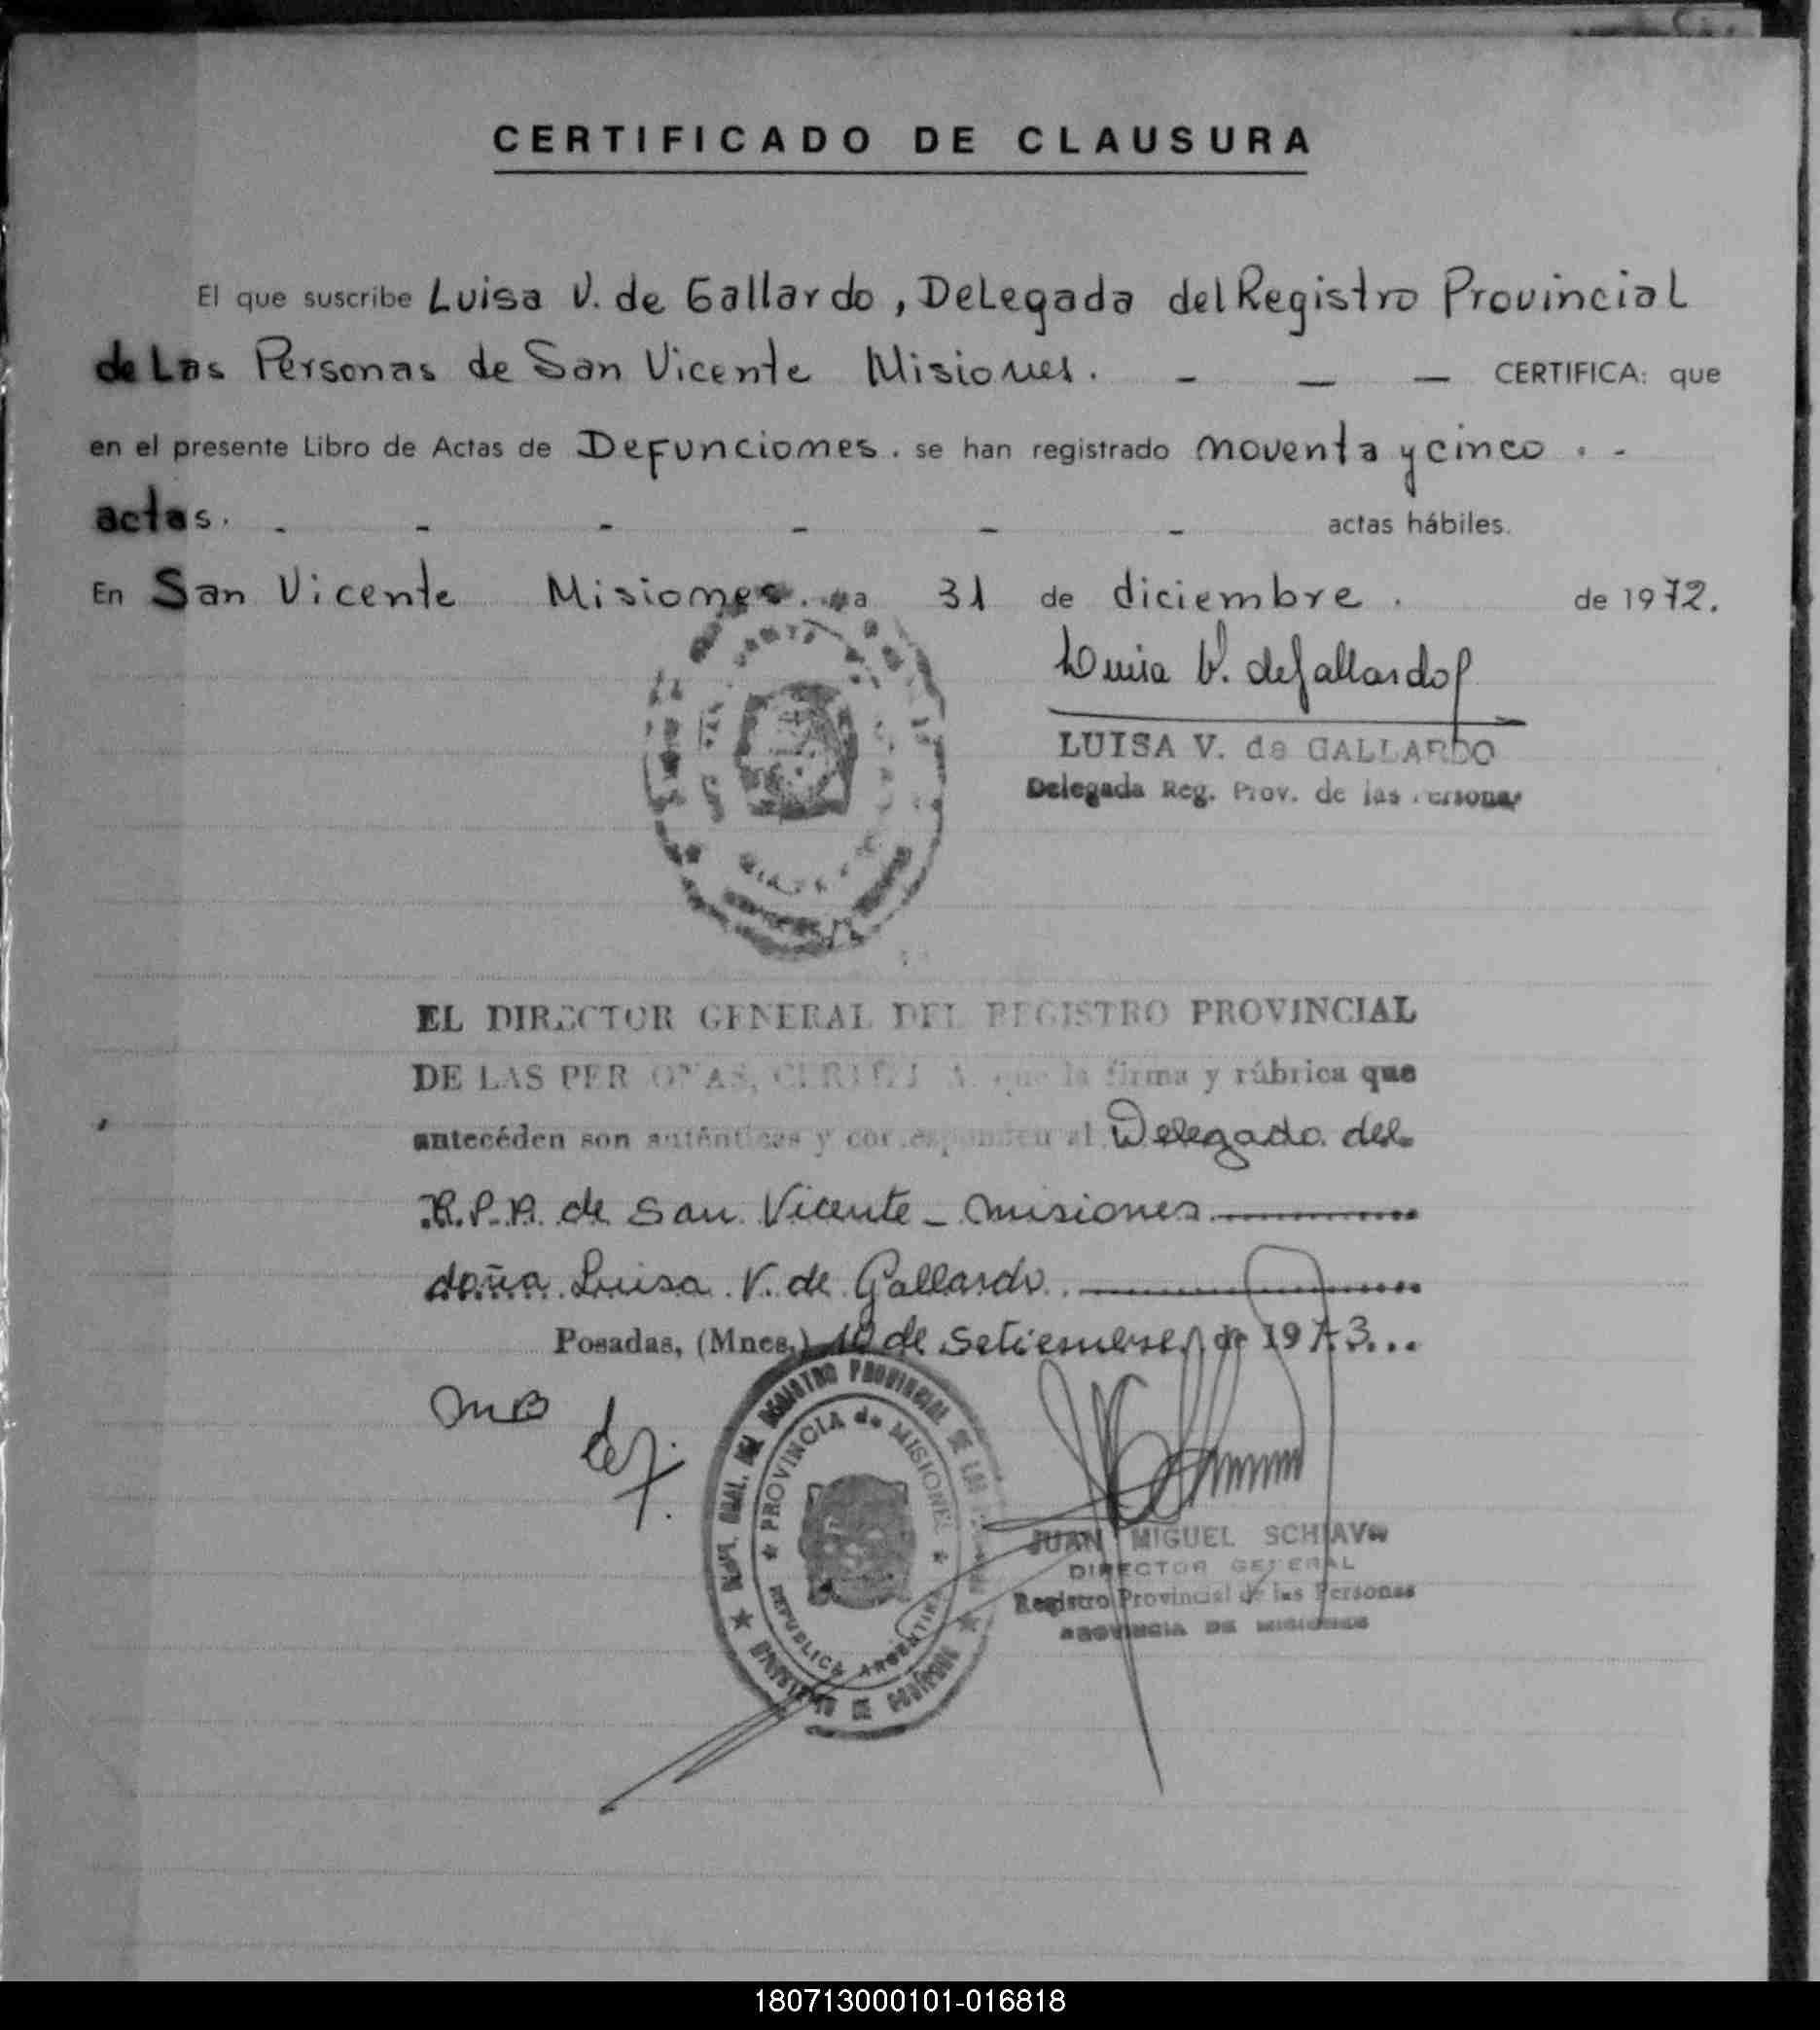 CERTIFICADO DE CLAUSURA
El que suscribe Luisa V. de Gallardo, Delegada del Registro Provincial
de Las Personas de San Vicente Misiones. - - - CERTIFICA: que
en el presente Libro de Actas de Defunciones. se han registrado noventa y cinco . -
actas. - - - - - - actas hábiles.
En San Vicente Misiones. a 31 de diciembre. de 1972.
Luisa V. de Gallardo
LUISA V. de GALLARDO
Delegada Reg. Prov. de las Personas
EL DIRECTOR GENERAL DEL REGISTRO PROVINCIAL
DE LAS PERSONAS, CERTIFICA que la firma y rúbrica que
antecéden son auténticas y corresponden al Delegado del
R.P.P. de San Vicente - Misiones
doña Luisa V. de Gallardo
Posadas, (Mnes.) 10 de Setiembre de 1973...
DEL REGISTRO PROVINCIAL DE LAS
PROVINCIA de MISIONES
REPUBLICA ARGENTINA
MINISTERIO DE GOBIERNO
JUAN MIGUEL SCHIAVO
DIRECTOR GENERAL
Registro Provincial de las Personas
PROVINCIA DE MISIONES
180713000101-016818